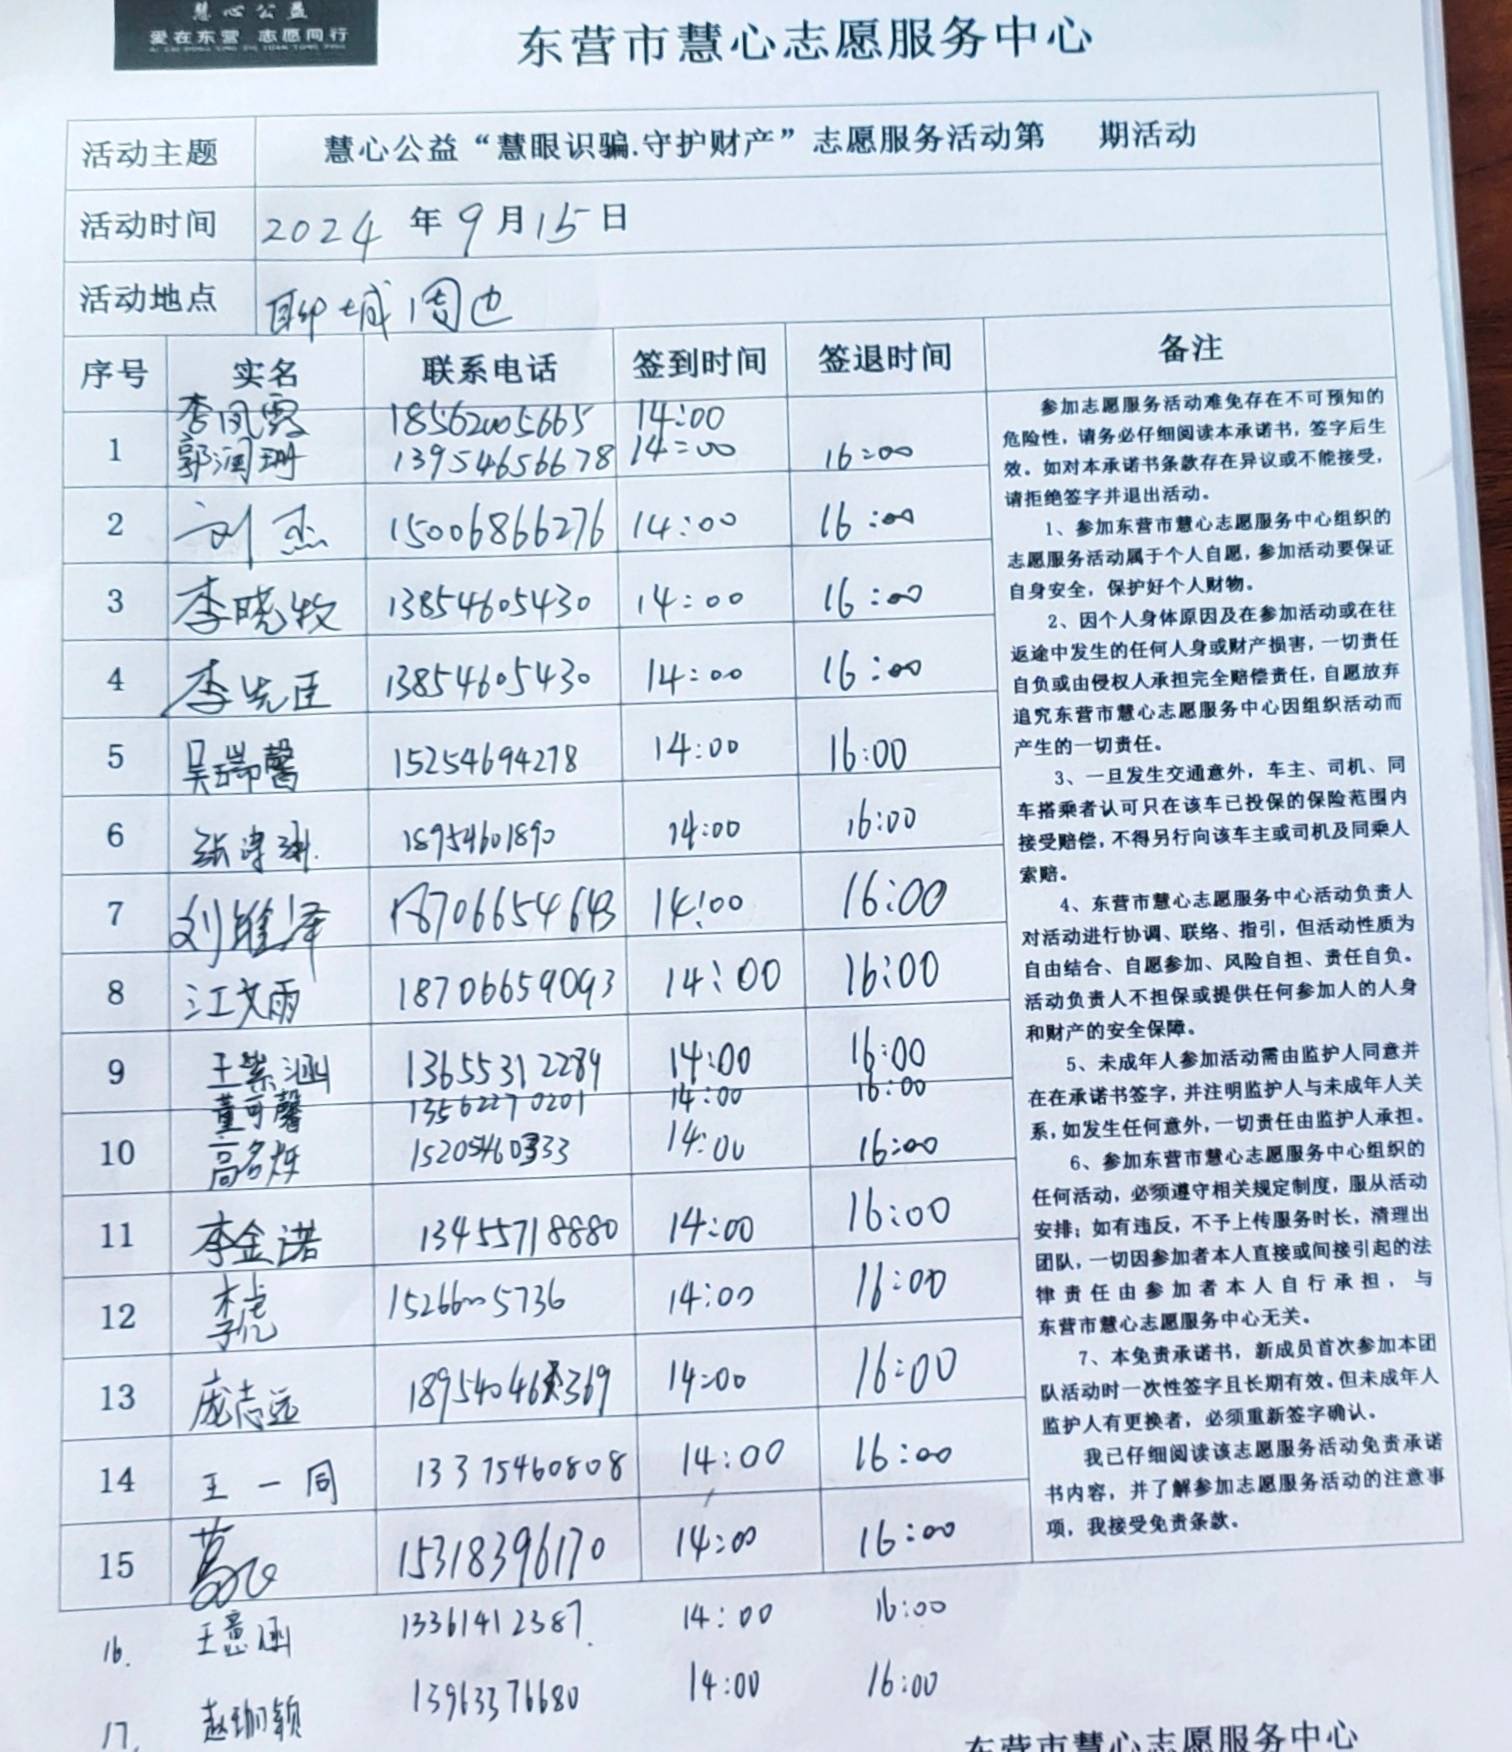 慧心公益
爱在东营 志愿同行
东营市慧心志愿服务中心
活动主题 慧心公益“慧眼识骗.守护财产”志愿服务活动第 期活动
活动时间 2024 年 9 月 15 日
活动地点 聊城周边
序号 实名 联系电话 签到时间 签退时间 备注
李凤霞 18562005665 14:00
1 郭润珊 13954656678 14:00 16:00
2 刘杰 15006866276 14:00 16:00
3 李晓牧 13854605430 14:00 16:00
4 李先臣 13854605430 14:00 16:00
5 吴瑞馨 15254694278 14:00 16:00
6 18954601890 14:00 16:00
7 刘维泽 18706654643 14:00 16:00
8 江文雨 18706659093 14:00 16:00
9 王紫涵 13655312289 14:00 16:00
董可馨 13562270201 14:00 16:00
10 高名烁 15205460333 14:00 16:00
11 李金诺 13455718880 14:00 16:00
12 李虎 15266005736 14:00 16:00
13 庞志远 14:00 16:00
14 王一同 13375460808 14:00 16:00
15 15318396170 14:00 16:00
16. 王意涵 13361412387. 14:00 16:00
17. 赵珈颖 13963376680 14:00 16:00
参加志愿服务活动难免存在不可预知的
危险性，请务必仔细阅读本承诺书，签字后生
效。如对本承诺书条款存在异议或不能接受，
请拒绝签字并退出活动。
1、参加东营市慧心志愿服务中心组织的
志愿服务活动属于个人自愿，参加活动要保证
自身安全，保护好个人财物。
2、因个人身体原因及在参加活动或在往
返途中发生的任何人身或财产损害，一切责任
自负或由侵权人承担完全赔偿责任，自愿放弃
追究东营市慧心志愿服务中心因组织活动而
产生的一切责任。
3、一旦发生交通意外，车主、司机、同
车搭乘者认可只在该车已投保的保险范围内
接受赔偿，不得另行向该车主或司机及同乘人
索赔。
4、东营市慧心志愿服务中心活动负责人
对活动进行协调、联络、指引，但活动性质为
自由结合、自愿参加、风险自担、责任自负。
活动负责人不担保或提供任何参加人的人身
和财产的安全保障。
5、未成年人参加活动需由监护人同意并
在在承诺书签字，并注明监护人与未成年人关
系，如发生任何意外，一切责任由监护人承担。
6、参加东营市慧心志愿服务中心组织的
任何活动，必须遵守相关规定制度，服从活动
安排；如有违反，不予上传服务时长，清理出
团队，一切因参加者本人直接或间接引起的法
律责任由参加者本人自行承担，与
东营市慧心志愿服务中心无关。
7、本免责承诺书，新成员首次参加本团
队活动时一次性签字且长期有效。但未成年人
监护人有更换者，必须重新签字确认。
我已仔细阅读该志愿服务活动免责承诺
书内容，并了解参加志愿服务活动的注意事
项，我接受免责条款。
东营市慧心志愿服务中心